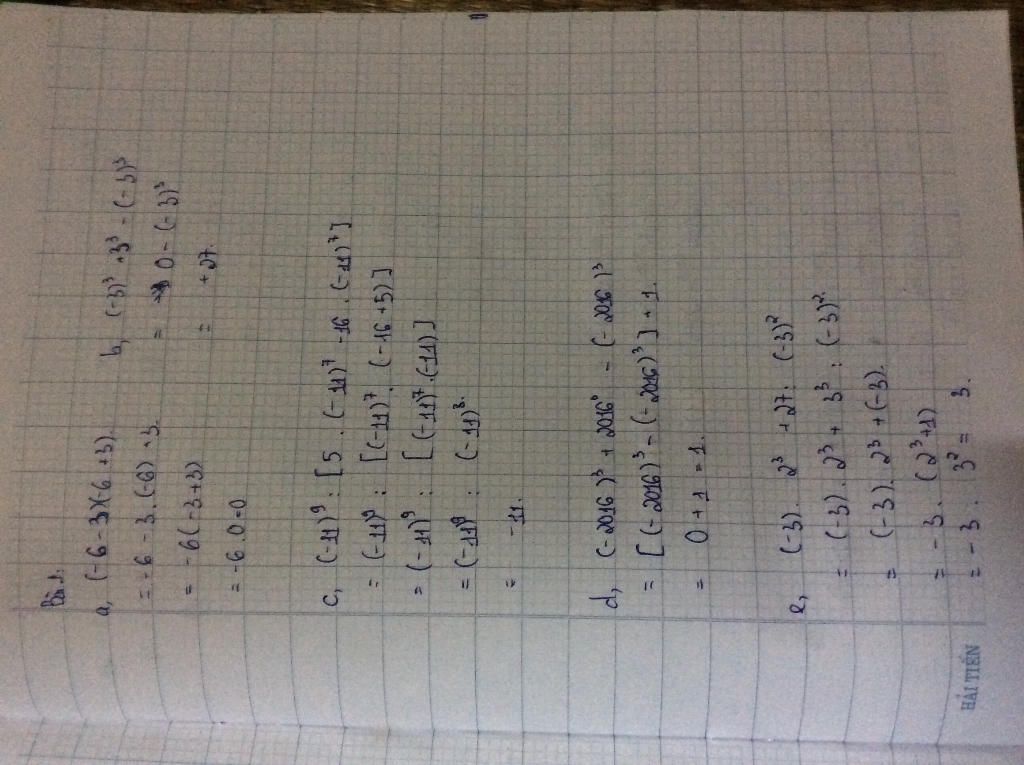 Bài 1:
a, (-6 - 3)(-6 + 3).
= -6 - 3 . (-6) + 3.
= -6 (-3 + 3)
= -6 . 0 = 0
b, (-3)³ + 3³ - (-3)³
= 0 - (-3)³
= + 27.
c, (-11)⁹ : [5 . (-11)⁷ - 16 . (-11)⁷]
= (-11)⁹ : [(-11)⁷ . (-16 + 5)]
= (-11)⁹ : [(-11)⁷ . (-11)]
= (-11)⁹ : (-11)⁸.
= -11.
d, (-2016)³ + 2016⁰ - (-2016)³
= [(-2016)³ - (-2016)³] + 1.
= 0 + 1 = 1.
e, (-3) . 2³ + 27 : (-3)²
= (-3) . 2³ + 3³ : (-3)².
= (-3) . 2³ + (-3).
= -3 . (2³ + 1)
= -3 : 3² = 3.
HẢI TIẾN